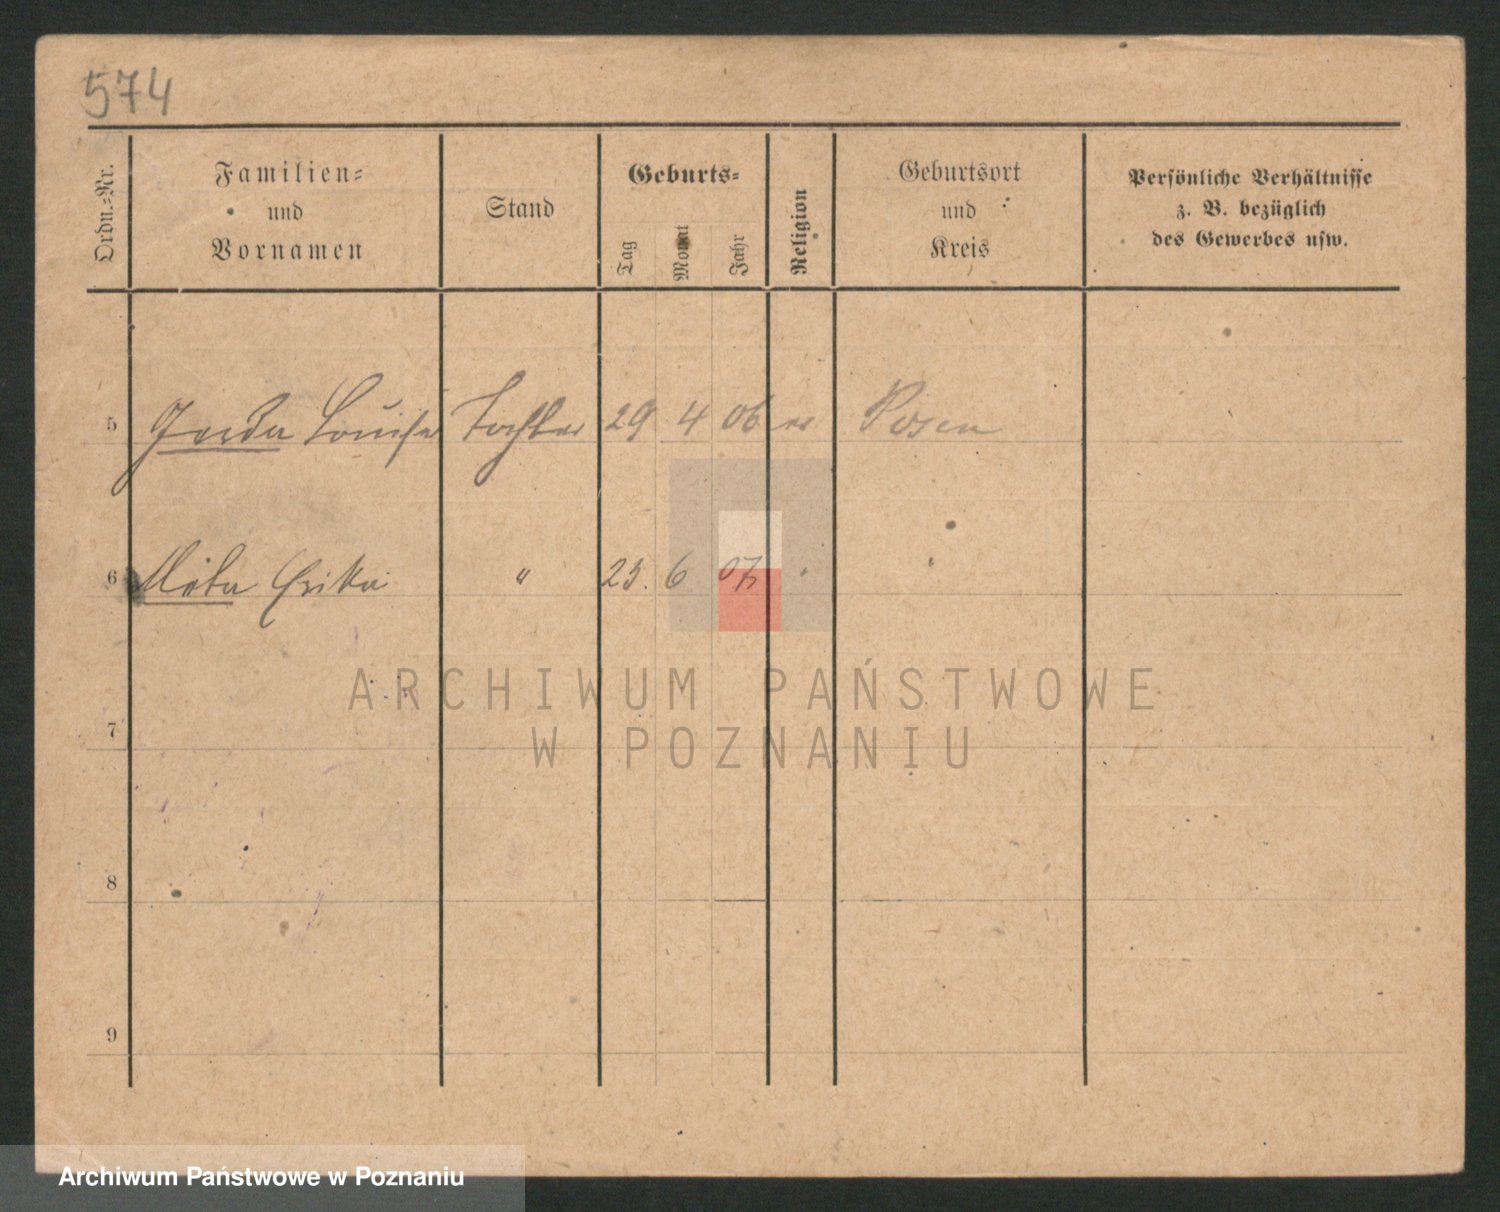 574
Ordn.=Nr.
Familien=
und
Vornamen
Stand
Geburts=
Tag
Monat
Jahr
Religion
Geburtsort
und
Kreis
Persönliche Verhältnisse
z. B. bezüglich
des Gewerbes usw.
5 Gerda Louise Tochter 29 4 06 Posen
6 Erika " 23. 6 07 " "
ARCHIWUM PAŃSTWOWE
W POZNANIU
7
8
9
Archiwum Państwowe w Poznaniu